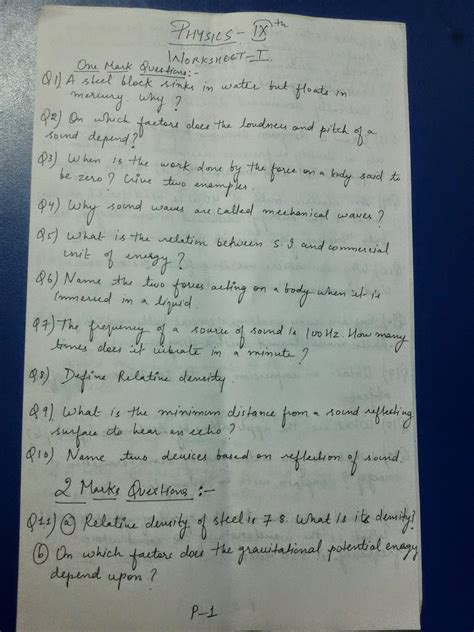 PHYSICS - IXth
WORKSHEET-I
One Mark Questions:-
Q1) A steel block sinks in water but floats in
mercury. Why?
Q2) On which factors does the loudness and pitch of a
sound depend?
Q3) When is the work done by the force on a body said to
be zero? Give two examples.
Q4) Why sound waves are called mechanical waves?
Q5) What is the relation between S.I and commercial
unit of energy?
Q6) Name the two forces acting on a body when it is
immersed in a liquid.
Q7) The frequency of a source of sound is 100Hz. How many
times does it vibrate in a minute?
Q8) Define Relative density.
Q9) What is the minimum distance from a sound reflecting
surface to hear an echo?
Q10) Name two devices based on reflection of sound.
2 Marks Questions:-
Q11) (a) Relative density of steel is 7.8. What is its density?
(b) On which factors does the gravitational potential energy
depend upon?
P-1